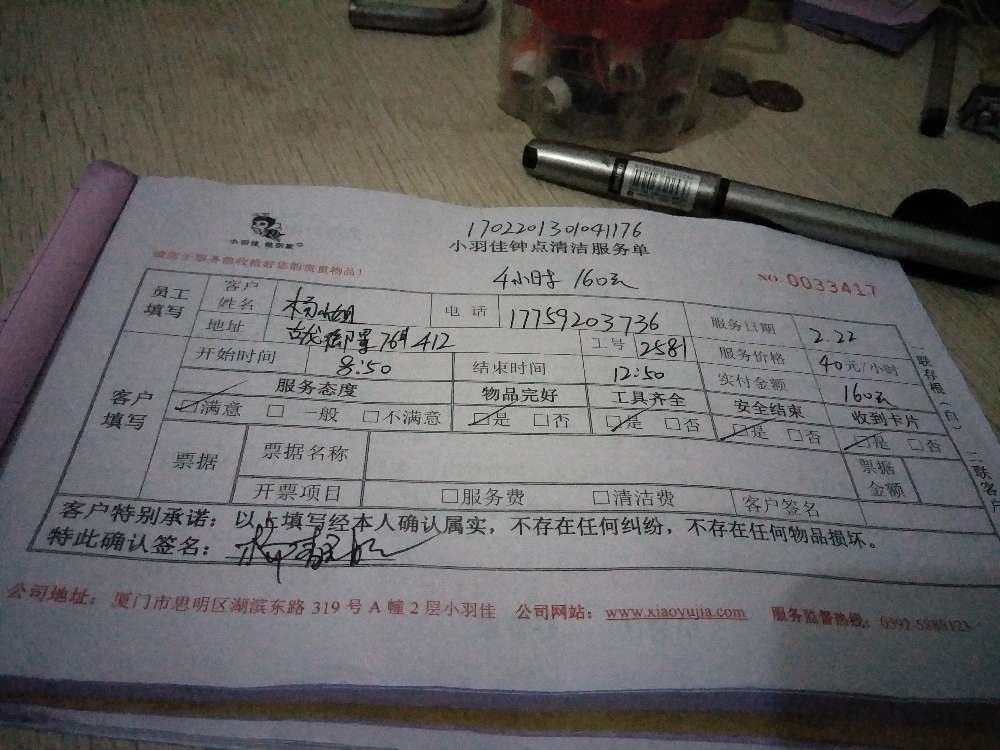 170220130104 1176
小羽佳钟点清洁服务单
小羽佳 做到家
请您于服务前收拾好您的贵重物品!
4小时 160元
NO. 0033417
员工填写
客户姓名 杨小姐
电话 17759203736
服务日期 2.22
地址 76号 412
工号 2581
服务价格 40元/小时
开始时间 8:50
结束时间 12:50
实付金额 160元
客户填写
服务态度 物品完好 工具齐全 安全结束 收到卡片
☑满意 □一般 □不满意 ☑是 □否 ☑是 □否 ☑是 □否 ☑是 □否
票据
票据名称
票据金额
开票项目 □服务费 □清洁费 客户签名
客户特别承诺：以上填写经本人确认属实，不存在任何纠纷，不存在任何物品损坏。
特此确认签名：
公司地址：厦门市思明区湖滨东路 319 号 A 幢 2 层小羽佳 公司网站：www.xiaoyujia.com 服务监督热线：0592-5888123
一联存根（白）
二联客户